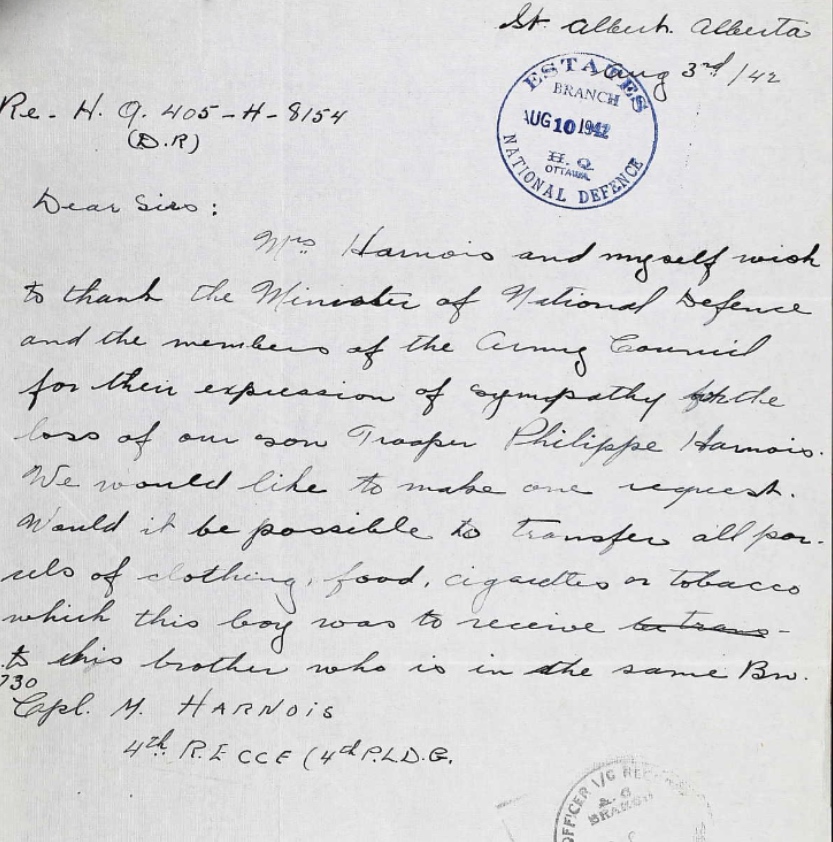 St. Albert. Alberta
Aug 3rd/42
ESTATES
BRANCH
AUG 10 1942
H. Q.
OTTAWA.
NATIONAL DEFENCE
Re - H. Q. 405-H-8154
(D.R)
Dear Sirs:
Mrs Harnois and myself wish
to thank the Minister of National Defence
and the members of the Army Council
for their expression of sympathy for the
loss of our son Trooper Philippe Harnois.
We would like to make one request.
Would it be possible to transfer all par-
sels of clothing, food, cigarettes or tobacco
which this boy was to receive
to his brother who is in the same Bn.
730
Cpl. M. HARNOIS
4th RECCE (4th P.L.D.G.
OFFICER I/C
BRANCH